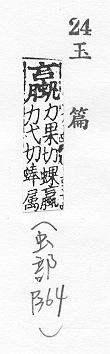 24 玉篇
蠃
力果切蜾蠃
力戈切蜯属
(虫部P364)